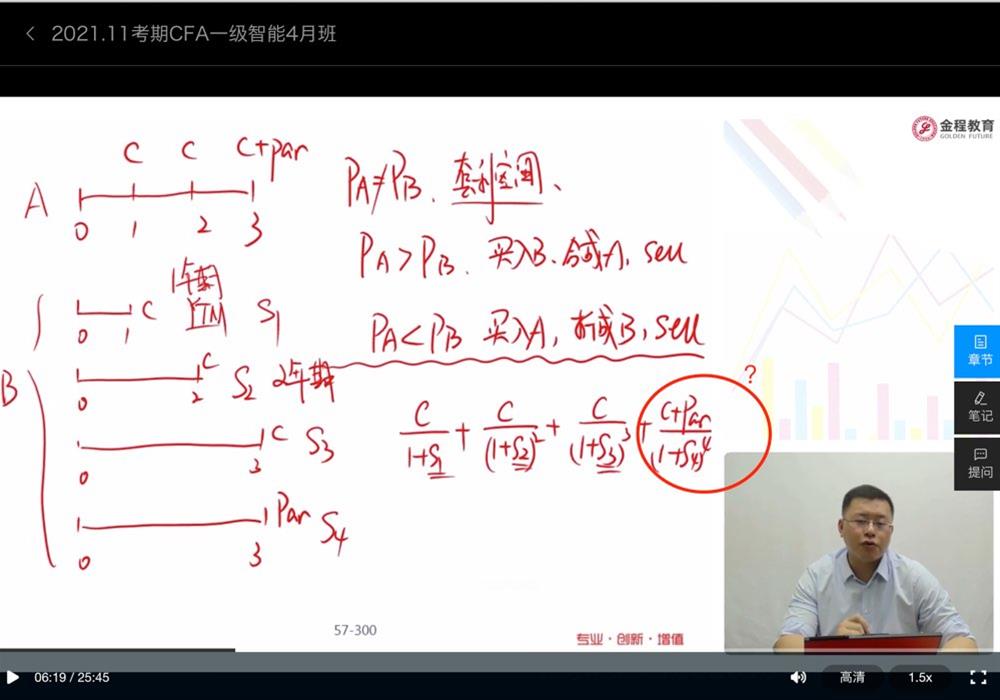 2021.11考期CFA一级智能4月班
金程教育
GOLDEN FUTURE
C C C+par
A
0 1 2 3
PA≠PB、套利空间、
PA>PB、买入B、合成A, sell
PA<PB 买入A, 拆成B, sell
B
1年期
C YTM S1
0 1
C S2 2年期
0 2
C S3
0 3
Par S4
0 3
C/(1+S1) + C/(1+S2)² + C/(1+S3)³ + (C+Par)/(1+S4)⁴
?
章节
笔记
提问
57-300
专业·创新·增值
06:19 / 25:45
高清
1.5x